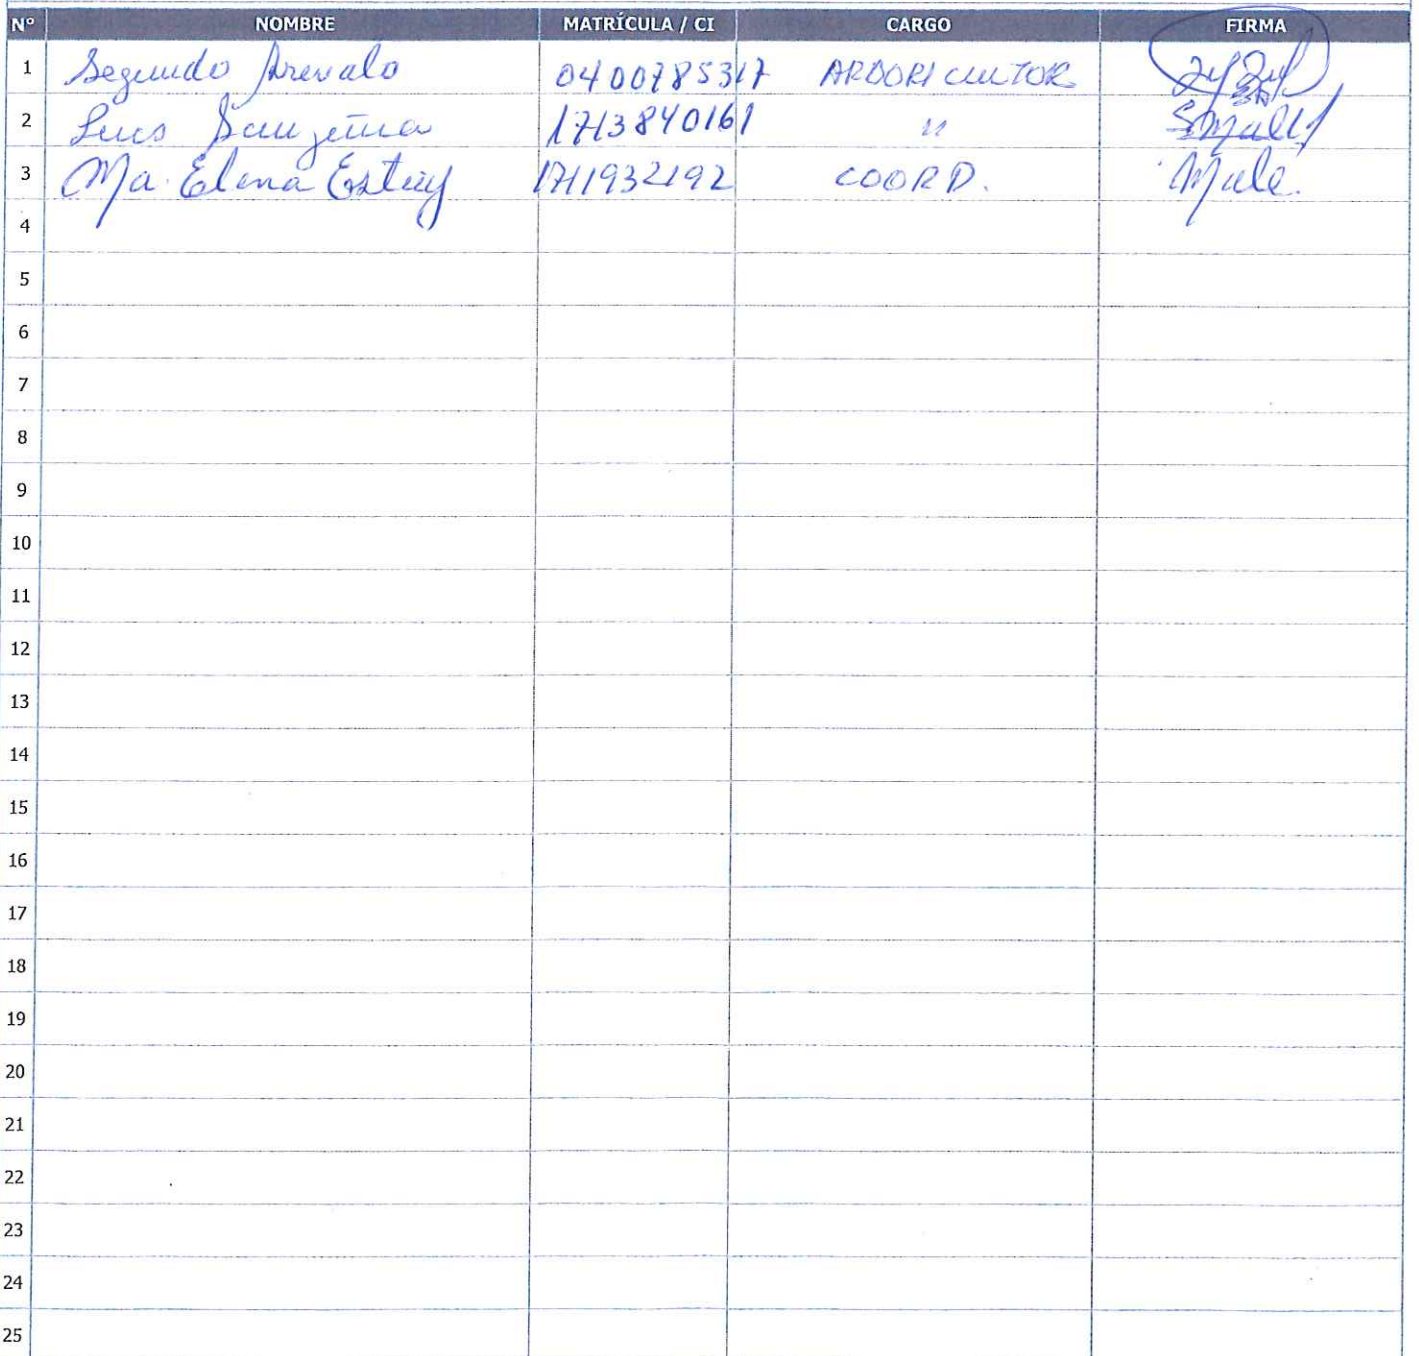 N° NOMBRE MATRÍCULA / CI CARGO FIRMA
1 Segundo Arevalo 0400785317 ARBORICULTOR
2 Luis 1713840161 "
3 Ma. Elena 1711932192 COORD. Male.
4
5
6
7
8
9
10
11
12
13
14
15
16
17
18
19
20
21
22
23
24
25